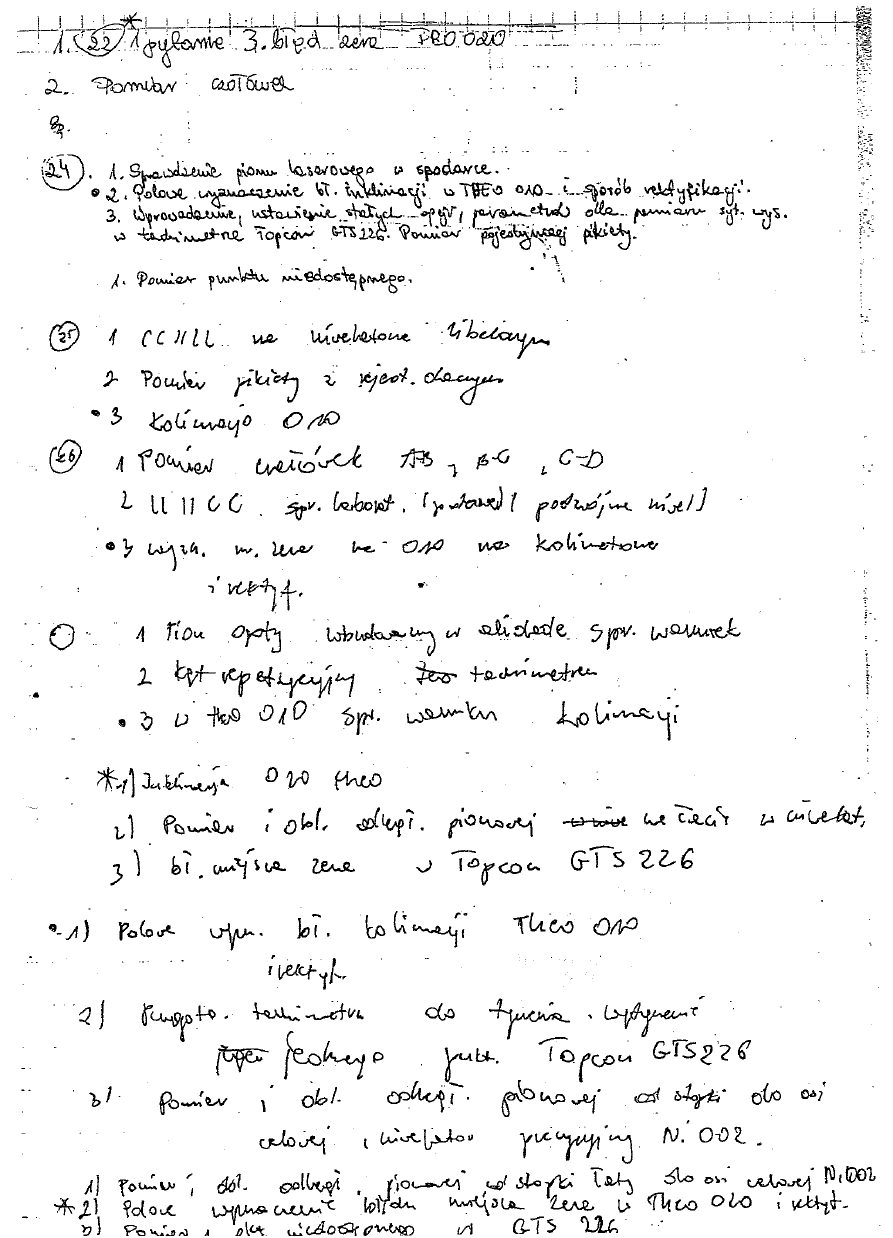 1. 22 * 1 pytanie 3. błąd zera THEO 020
2. Pomiar czołówek
24. 1. Sprawdzenie pionu laserowego w spodarce.
• 2. Polowe wyznaczenie bł. inklinacji w THEO 010 i sposób rektyfikacji.
3. Wprowadzenie, ustawienie stałych opcji, parametrów dla pomiaru syt. wys.
w tachimetrze Topcon GTS 226. Pomiar pojedynczej pikiety.
1. Pomiar punktu niedostępnego.
25 1 CC II LL na niwelatorze libelowym
2 Pomiar pikiety z rejest. danych
• 3 Kolimacja 010
26 1 Pomiar czołówek AB, B-C, C-D
2 LL II CC spr. laborat. (podwójne niwel)
• 3 wyzn. m. zera na 010 na kolimatorze
i rektyf.
1 Pion opty wbudowany w alidade spr. warunek
2 Kąt repetycyjny tachimetrem
• 3 w theo 010 spr. warunku kolimacji
* 1) Inklinacja 020 theo
2) Pomiar i obl. odległ. pionowej na łacie w niwelat.
3) bł. miejsca zera w Topcon GTS 226
• 1) Polowe wyzn. bł. kolimacji Theo 010
i rektyf.
2) Przygoto. tachimetru do tyczenia. wytyczenie
jednego pukt. Topcon GTS 226
3) Pomiar i obl. odległ. pionowej od stopki do osi
celowej niwelator precyzyjny Ni 002.
1) Pomiar i obl. odległ. pionowej od stopki łaty do osi celowej Ni 002
* 2) Polowe wyznaczenie błędu miejsca zera w Theo 020 i rektyf.
3) Pomiar pkt niedostępnego w GTS 226